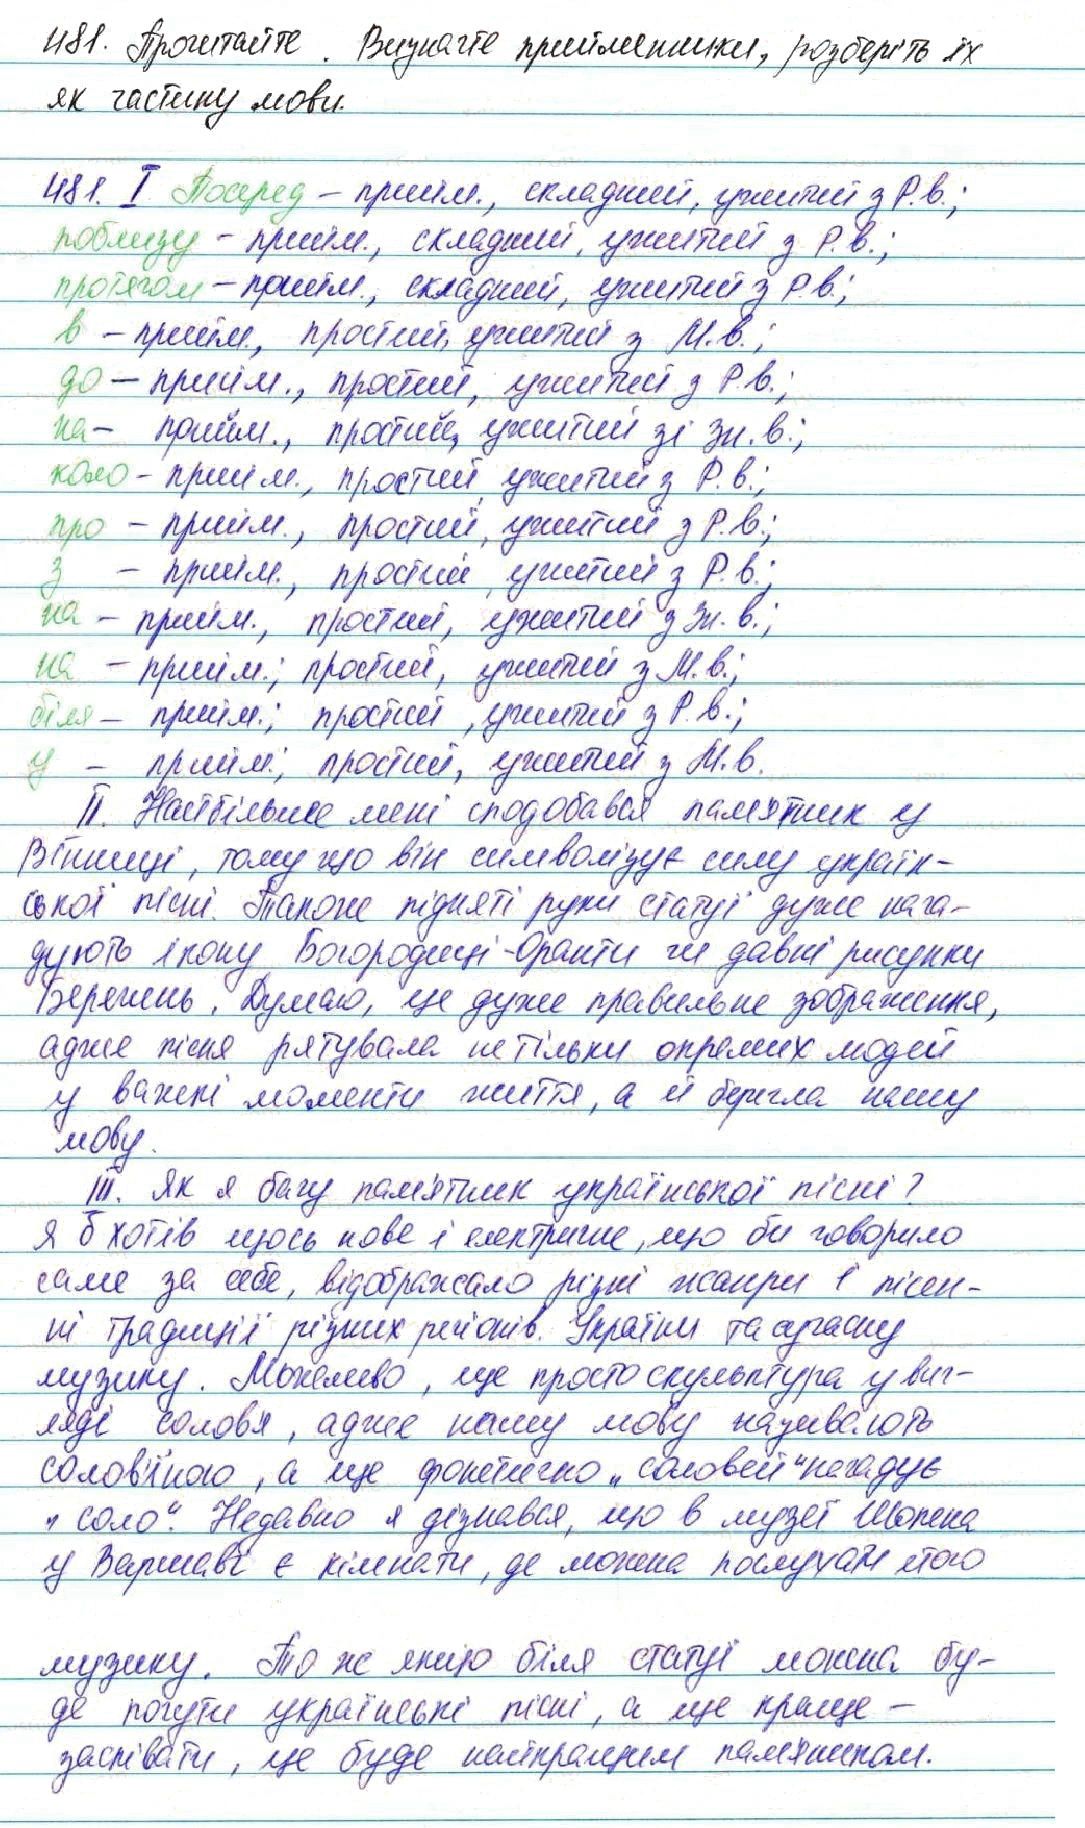 481. Прочитайте. Визначте прийменники, розберіть їх
як частину мови.
481. І Посеред – прийм., складний, ужитий з Р.в.;
поблизу – прийм., складний, ужитий з Р.в.;
протягом – прийм., складний, ужитий з Р.в.;
в – прийм., простий, ужитий з М.в.;
до – прийм., простий, ужитий з Р.в.;
на – прийм., простий, ужитий зі Зн.в.;
коло – прийм., простий, ужитий з Р.в.;
про – прийм., простий, ужитий з Р.в.;
з – прийм., простий, ужитий з Р.в.;
на – прийм., простий, ужитий з Зн.в.;
на – прийм.; простий, ужитий з М.в.;
біля – прийм.; простий, ужитий з Р.в.;
у – прийм.; простий, ужитий з М.в.
ІІ. Найбільше мені сподобався пам'ятник у
Вінниці, тому що він символізує силу україн-
ської пісні. Також підняті руки статуї дуже нага-
дують ікону Богородиці-Оранти чи давні рисунки
Бережень. Думаю, це дуже правильне зображення,
адже пісня рятувала не тільки окремих людей
у важкі моменти життя, а й берегла нашу
мову.
ІІІ. Як я бачу пам'ятник української пісні?
Я б хотів щось нове і електричне, що би говорило
саме за себе, відображало різні жанри і пісен-
ні традиції різних регіонів. України та сучасну
музику. Можливо, це просто скульптура у виг-
ляді солов'я, адже нашу мову називають
солов'їною, а ще фонетично „соловей" нагадує
„соло". Недавно я дізнався, що в музеї Шопена
у Варшаві є кімнати, де можна послухати його
музику. То ж якщо біля статуї можна бу-
де почути українські пісні, а ще краще –
заспівати, це буде найкращим пам'ятником.